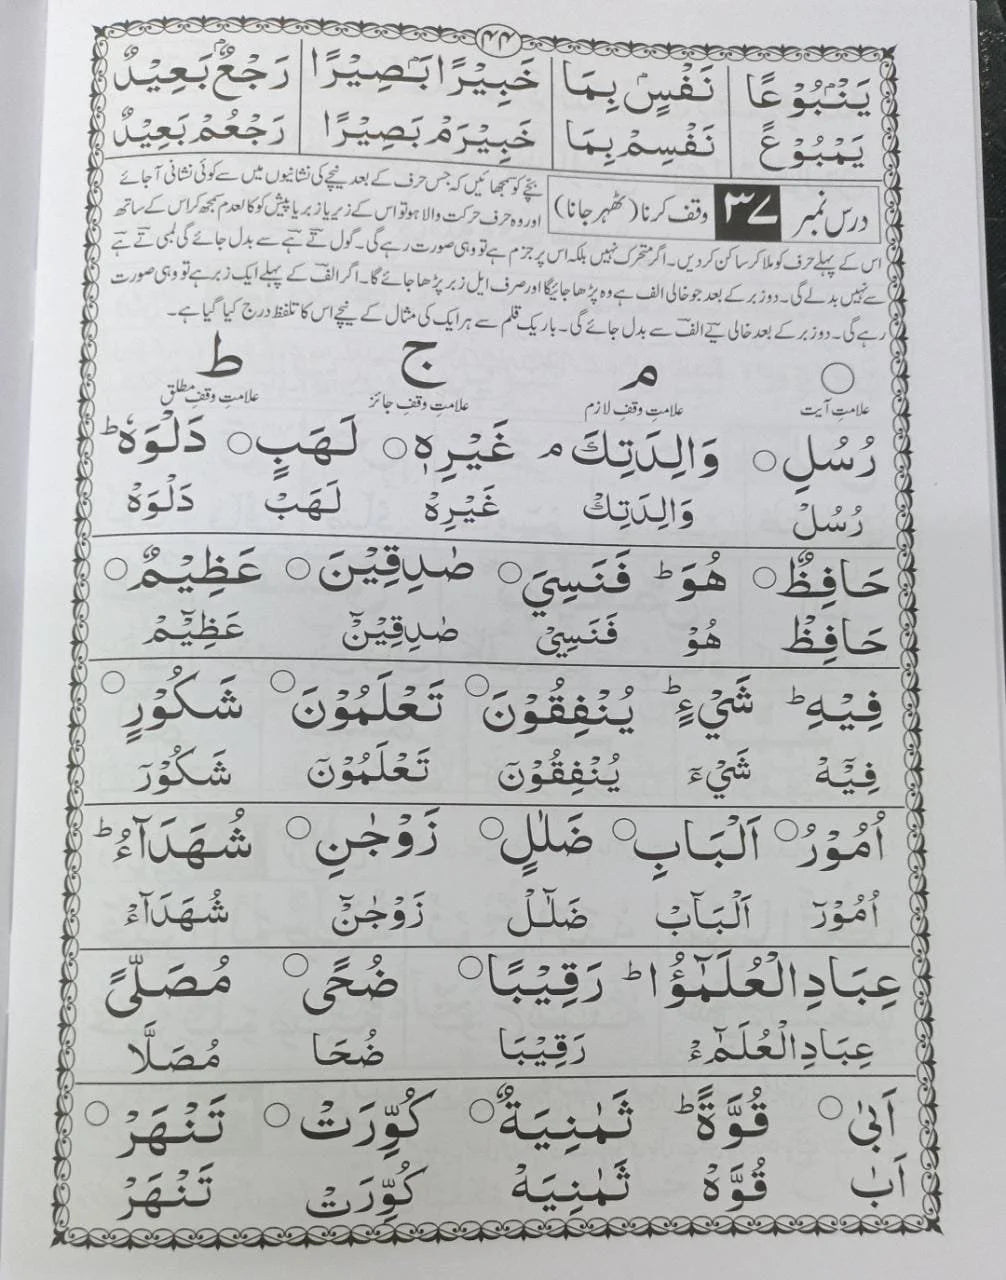 ۴۴
يَنْۢبُوْعًا نَفْسٍۭ بِمَا خَبِيْرًاۢ بَصِيْرًا رَجْعٌۢ بَعِيْدٌ
يَمْبُوْعً نَفْسِمْ بِمَا خَبِيْرَمْ بَصِيْرًا رَجْعُمْ بَعِيْدٌ
درس نمبر ۳۷ وقف کرنا (ٹھہر جانا)
بچے کو سمجھائیں کہ جس حرف کے بعد نیچے کی نشانیوں میں سے کوئی نشانی آ جائے
اور وہ حرف حرکت والا ہو تو اس کے زیر یا زبر یا پیش کو کالعدم سمجھ کر اس کے ساتھ
اس کے پہلے حرف کو ملا کر ساکن کر دیں۔ اگر متحرک نہیں بلکہ اس پر جزم ہے تو وہی صورت رہے گی۔ گول تے ہے سے بدل جائے گی لمبی تے ہے
سے نہیں بدلے گی۔ دو زبر کے بعد جو خالی الف ہے وہ پڑھا جائیگا اور صرف ایل زبر پڑھا جائے گا۔ اگر الف کے پہلے ایک زبر ہے تو وہی صورت
رہے گی۔ دو زبر کے بعد خالی یے الف سے بدل جائے گی۔ باریک قلم سے ہر ایک کی مثال کے نیچے اس کا تلفظ درج کیا گیا ہے۔
○ م ج ط
علامتِ آیت علامتِ وقفِ لازم علامتِ وقفِ جائز علامتِ وقفِ مطلق
رُسُلٍ ○ وَالِدَتِكَ م غَيْرِهٖ ○ لَهَبٍ ○ دَلْوَهٗ ط
رُسُلْ وَالِدَتِكْ غَيْرِهْ لَهَبْ دَلْوَهْ
حَافِظٌ ○ هُوَ ط فَنَسِيَ ○ صٰدِقِيْنَ ○ عَظِيْمٌ ○
حَافِظْ هُوْ فَنَسِيْ صٰدِقِيْنْ عَظِيْمْ
فِيْهِ ط شَيْءٍ ط يُنْفِقُوْنَ ○ تَعْلَمُوْنَ ○ شَكُوْرٍ ○
فِيْهْ شَيْءْ يُنْفِقُوْنْ تَعْلَمُوْنْ شَكُوْرْ
اُمُوْرُ ○ اَلْبَابِ ○ ضَلٰلٍ ○ زَوْجٰنِ ○ شُهَدَآءُ ط
اُمُوْرْ اَلْبَآبْ ضَلٰلْ زَوْجٰنْ شُهَدَآءْ
عِبَادِالْعُلَمٰٓؤُا ط رَقِيْبًا ○ ضُحًى ○ مُصَلًّى
عِبَادِالْعُلَمٰٓءْ رَقِيْبَا ضُحَا مُصَلَّا
اَبٰى ○ قُوَّةً ط ثَمٰنِيَةٌ ○ كُوِّرَتْ ○ تَنْهَرْ ○
اَبٰ قُوَّهْ ثَمٰنِيَهْ كُوِّرَتْ تَنْهَرْ